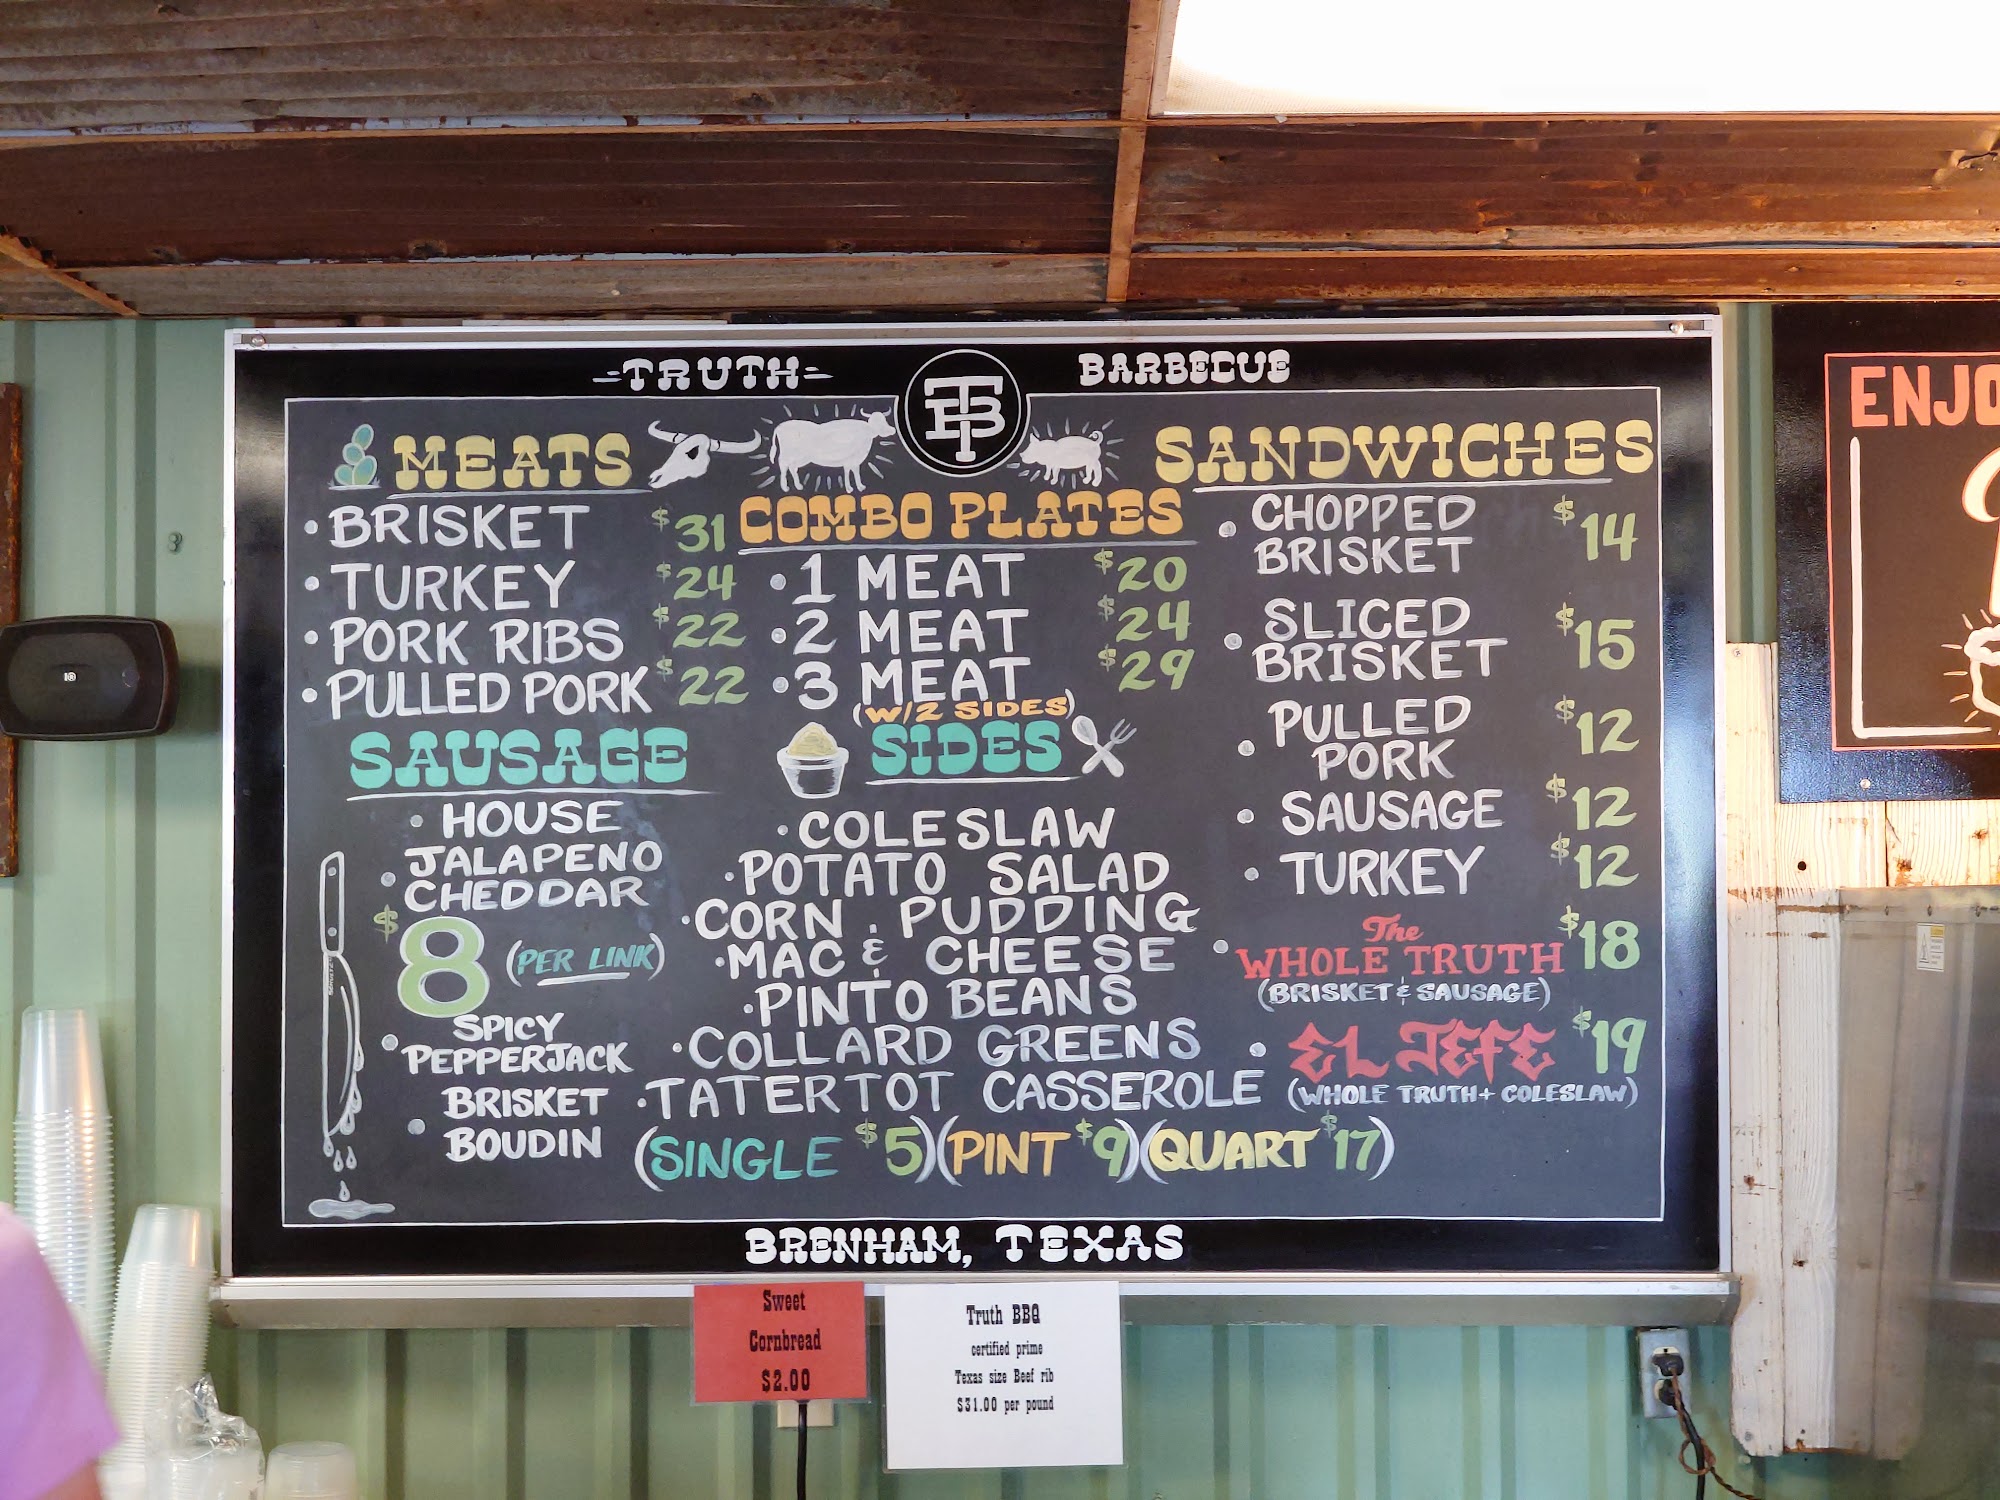 TRUTH BARBECUE
TB
MEATS
BRISKET $31
TURKEY $24
PORK RIBS $22
PULLED PORK $22
SAUSAGE
HOUSE
JALAPENO
CHEDDAR
$8 (PER LINK)
SPICY
PEPPERJACK
BRISKET
BOUDIN
COMBO PLATES
1 MEAT $20
2 MEAT $24
3 MEAT $29
(W/2 SIDES)
SIDES
COLESLAW
POTATO SALAD
CORN PUDDING
MAC & CHEESE
PINTO BEANS
COLLARD GREENS
TATERTOT CASSEROLE
(SINGLE $5) (PINT $9) (QUART $17)
SANDWICHES
CHOPPED
BRISKET $14
SLICED
BRISKET $15
PULLED
PORK $12
SAUSAGE $12
TURKEY $12
The
WHOLE TRUTH $18
(BRISKET & SAUSAGE)
EL JEFE $19
(WHOLE TRUTH + COLESLAW)
BRENHAM, TEXAS
Sweet
Cornbread
$2.00
Truth BBQ
certified prime
Texas size Beef rib
$31.00 per pound
ENJO